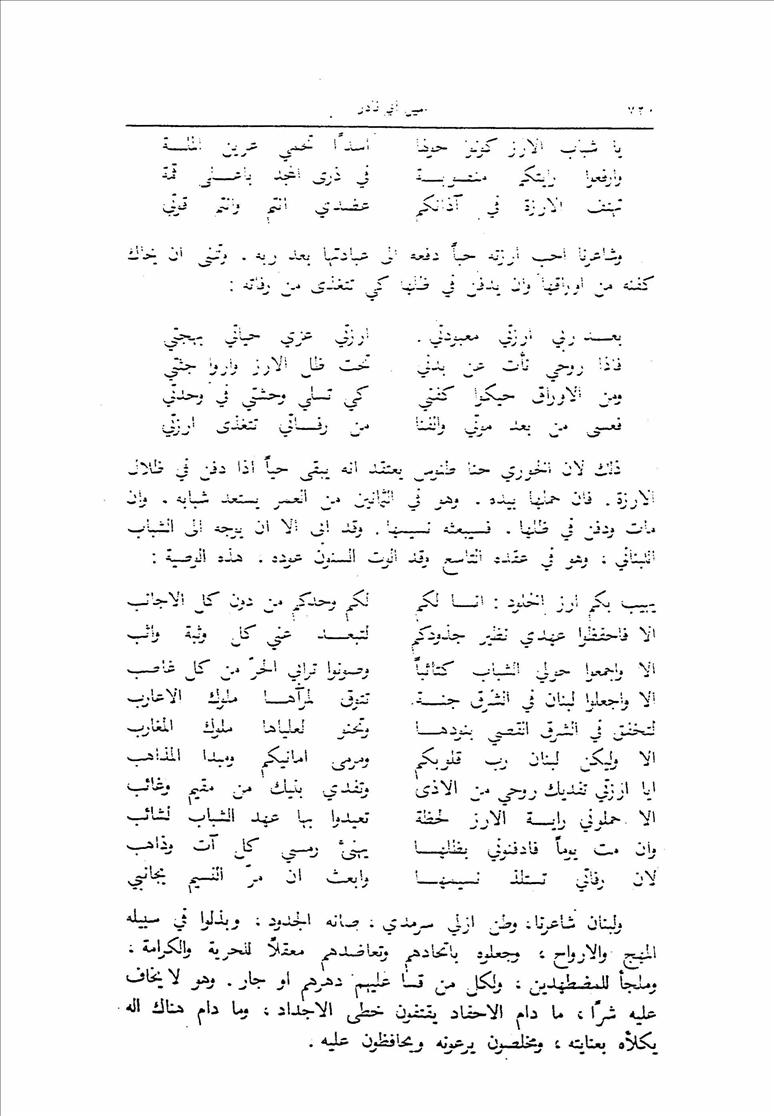 ٧٢٠ أمين أبي نادر
يا شباب الارز كونوا حولها اسداً تحمي عرين الملـة
وارفعوا رايتكم منصوبـة في ذرى المجد باعـلى قمة
تهتف الارزة في آذانكم عضدي انتم وانتم قوتي
وشاعرنا احب ارزته حباً دفعه الى عبادتها بعد ربه . وتمنى ان يحاك
كفنه من اوراقها وان يدفن في ظلها كي تتغذى من رفاته :
بعـد ربي ارزتي معبودتي . ارزتي عزي حياتي بهجتي
فاذا روحي نأت عن بدني تحت ظل الارز واروا جثتي
ومن الاوراق حيكوا كفني كي تسلي وحشتي في وحدتي
فعسى من بعد موتي والفنا من رفـاتي تتغذى ارزتي
ذلك لان الخوري حنا طنوس يعتقد انه يبقى حياً اذا دفن في ظلال
الارزة . فان حملها بيده . وهو في الثمانين من العمر يستعد شبابه . وان
مات ودفن في ظلها . فسيبعثه نسيمها . وقد ابى الا ان يوجه الى الشباب
اللبناني ، وهو في عقده التاسع وقد الوت السنون عوده . هذه الوصية :
يهيب بكم ارز الخلود : انـا لكم لكم وحدكم من دون كل الاجانب
الا فاحفظوا عهدي نظير جدودكم لتبعـد عني كل وثبة واثب
الا واجمعوا حولي الشباب كتائباً وصونوا ترابي الحرّ من كل غاصب
الا واجعلوا لبنان في الشرق جنـة. تتوق لمرآهـا ملوك الاعارب
لتخفق في الشرق القصي بنودهـا وتحنو لعلياها ملوك المغارب
الا وليكن لبنان رب قلوبكم ومرمى امانيكم ومبدا المذاهب
ايا ارزتي تفديك روحي من الاذى وتفدي بنيك من مقيم وغائب
الا حملوني رايـة الارز لحظة تعيدوا بها عهد الشباب لشائب
وان مت يوماً فادفنوني بظلهـا يهنئ رمسي كل آت وذاهب
لان رفاتي تستلذ نسيمهـا وابعث ان مرّ النسيم بجانبي
ولبنان شاعرنا، وطن ازلي سرمدي ، صانه الجدود ، وبذلوا في سبيله
المهج والارواح ، وجعلوه باتحادهم وتعاضدهم معقلاً للحرية والكرامة ،
وملجأ للمضطهدين ، ولكل من قسا عليهم دهرهم او جار . وهو لا يخاف
عليه شرًا ، ما دام الاحفاد يقتفون خطى الاجداد ، وما دام هناك اله
يكلأه بعنايته ، ومخلصون يرعونه ويحافظون عليه .